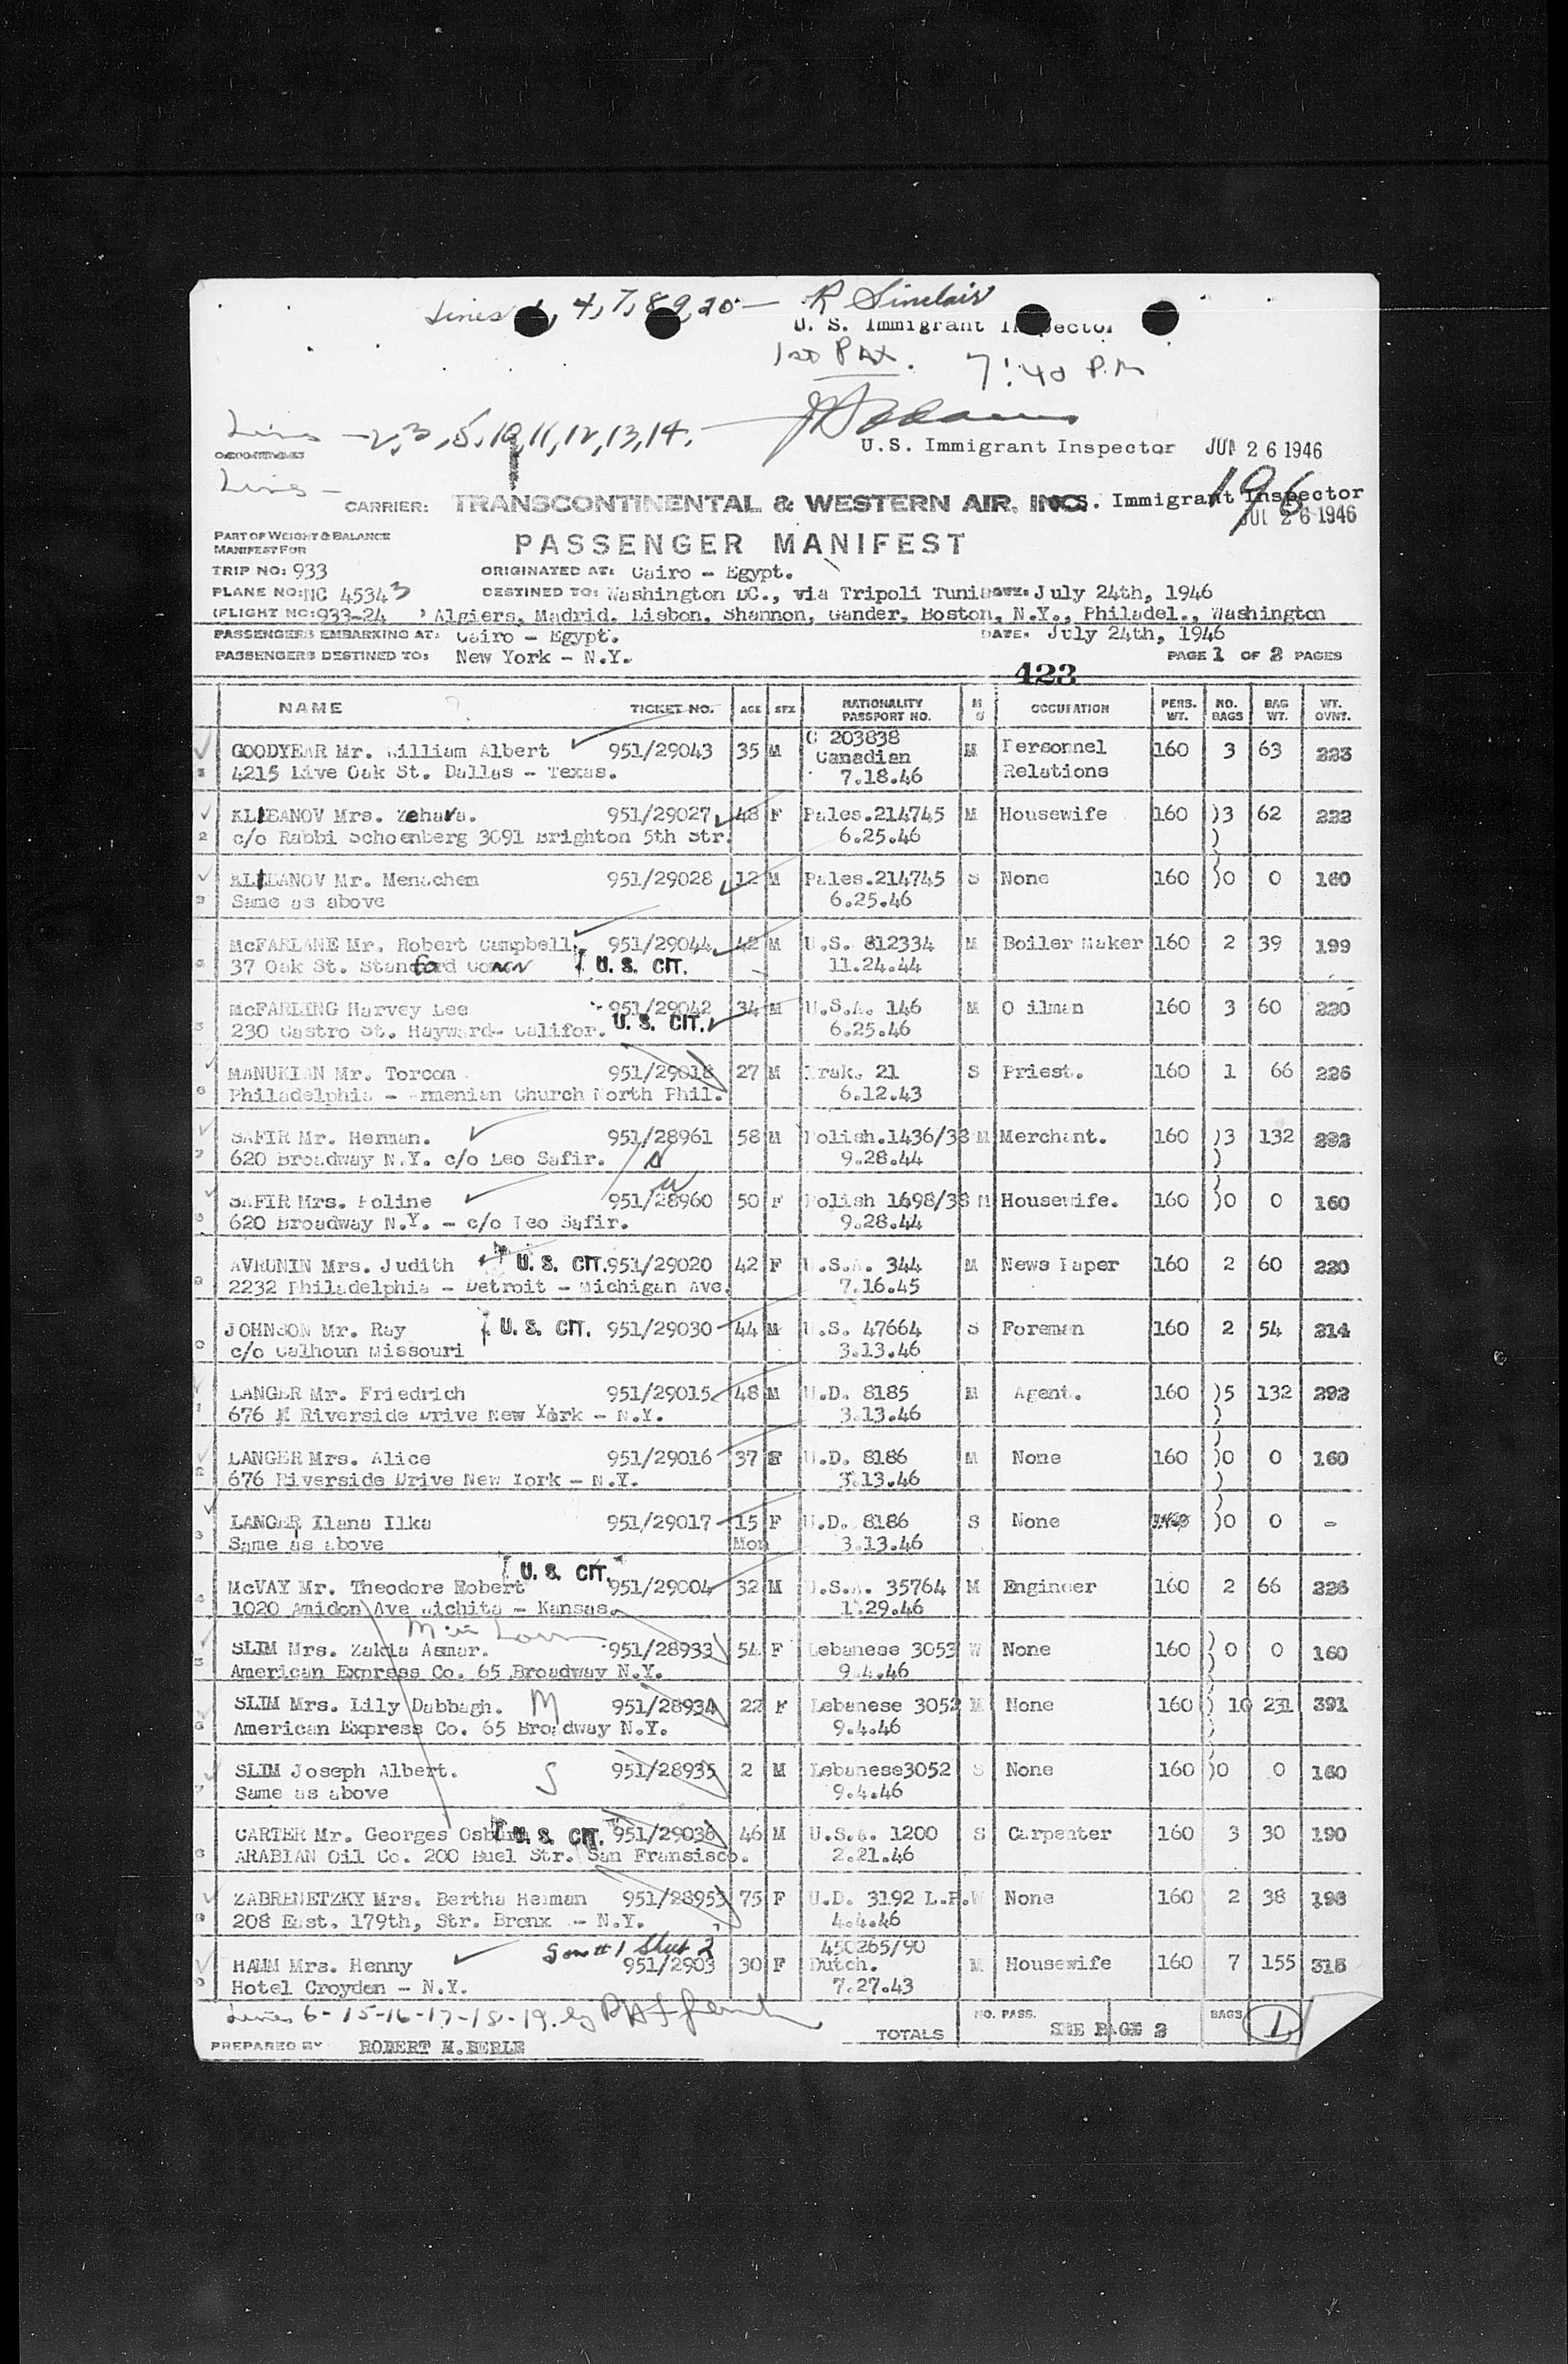 Lines 4, 7, 8, 9, 20 — R Sinclair
U. S. Immigrant Inspector
1st PAX. 7:40 P.M
Lines - 2, 3, 5, 10, 11, 12, 13, 14. -
U.S. Immigrant Inspector JUL 26 1946
Lines -
196
CARRIER: TRANSCONTINENTAL & WESTERN AIR, INC. S. Immigrant Inspector
JUL 26 1946
PART OF WEIGHT & BALANCE
MANIFEST FOR
PASSENGER MANIFEST
TRIP NO: 933 ORIGINATED AT: Cairo - Egypt.
PLANE NO: NC 45343 DESTINED TO: Washington DC., via Tripoli Tunis DATE: July 24th, 1946
(FLIGHT NO: 933-24 ) Algiers, Madrid, Lisbon, Shannon, Gander, Boston, N.Y., Philadel., Washington
PASSENGERS EMBARKING AT: Cairo - Egypt. DATE: July 24th, 1946
PASSENGERS DESTINED TO: New York - N.Y. PAGE 1 OF 2 PAGES
423
NAME TICKET NO. AGE SEX NATIONALITY PASSPORT NO. M S OCCUPATION PERS. WT. NO. BAGS BAG WT. WT. OVNT.
C 203838
GOODYEAR Mr. William Albert 951/29043 35 M Canadian M Personnel 160 3 63 223
4215 Live Oak St. Dallas - Texas. 7.18.46 Relations
KLEBANOV Mrs. Zehava. 951/29027 48 F Pales.214745 M Housewife 160 )3 62 222
2 c/o Rabbi Schoenberg 3091 Brighton 5th Str. 6.25.46 )
KLEBANOV Mr. Menachem 951/29028 12 M Pales.214745 S None 160 )0 0 160
3 Same as above 6.25.46
McFARLANE Mr. Robert Campbell. 951/29044 42 M U.S. 812334 M Boiler Maker 160 2 39 199
37 Oak St. Stamford Conn U. S. CIT. 11.24.44
McFARLING Harvey Lee 951/29042 34 M U.S.A. 146 M O ilman 160 3 60 220
5 230 Castro St. Hayward- Califor. U. S. CIT. 6.25.46
MANUKIAN Mr. Torcom 951/29018 27 M Irak. 21 S Priest. 160 1 66 226
6 Philadelphia - Armenian Church North Phil. 6.12.43
SAFIR Mr. Herman. 951/28961 58 M Polish.1436/38 M Merchant. 160 )3 132 292
7 620 Broadway N.Y. c/o Leo Safir. 9.28.44 )
SAFIR Mrs. Poline 951/28960 50 F Polish 1698/38 M Housewife. 160 )0 0 160
620 Broadway N.Y. - c/o Leo Safir. 9.28.44
AVRUNIN Mrs. Judith U. S. CIT. 951/29020 42 F U.S.A. 344 M News Paper 160 2 60 220
2232 Philadelphia - Detroit - Michigan Ave. 7.16.45
JOHNSON Mr. Ray U. S. CIT. 951/29030 44 M U.S. 47664 S Foreman 160 2 54 214
0 c/o Calhoun Missouri 3.13.46
LANGER Mr. Friedrich 951/29015 48 M U.D. 8185 M Agent. 160 )5 132 292
1 676 Riverside Drive New York - N.Y. 3.13.46 )
LANGER Mrs. Alice 951/29016 37 F U.D. 8186 M None 160 )0 0 160
2 676 Riverside Drive New York - N.Y. 3.13.46 )
LANGER Ilana Ilka 951/29017 15 F U.D. 8186 S None )0 0 -
3 Same as above Mon 3.13.46
U. S. CIT.
McVAY Mr. Theodore Robert 951/29004 32 M U.S.A. 35764 M Engineer 160 2 66 226
1020 Amidon Ave Wichita - Kansas. 1.29.46
SLIM Mrs. Zakia Asmar. 951/28933 54 F Lebanese 3053 W None 160 ) 0 0 160
5 American Express Co. 65 Broadway N.Y. 9.4.46 )
SLIM Mrs. Lily Dabbagh. M 951/28934 22 F Lebanese 3052 M None 160 ) 10 231 391
6 American Express Co. 65 Broadway N.Y. 9.4.46 )
SLIM Joseph Albert. S 951/28935 2 M Lebanese3052 S None 160 )0 0 160
7 Same as above 9.4.46
CARTER Mr. Georges Osburn U. S. CIT. 951/29036 46 M U.S.A. 1200 S Carpenter 160 3 30 190
ARABIAN Oil Co. 200 Buel Str. San Fransisco. 2.21.46
ZABRENETZKY Mrs. Bertha Heiman 951/28953 75 F U.D. 3192 L.P. W None 160 2 38 198
208 East. 179th, Str. Bronx - N.Y. 4.4.46
Son #1 Sheet 2 450265/90
HAMM Mrs. Henny 951/2903 30 F Dutch. M Housewife 160 7 155 315
Hotel Croyden - N.Y. 7.27.43
Lines 6-15-16-17-18-19. by
TOTALS NO. PASS. SEE PAGE 2 BAGS 1
PREPARED BY ROBERT M.BERLE